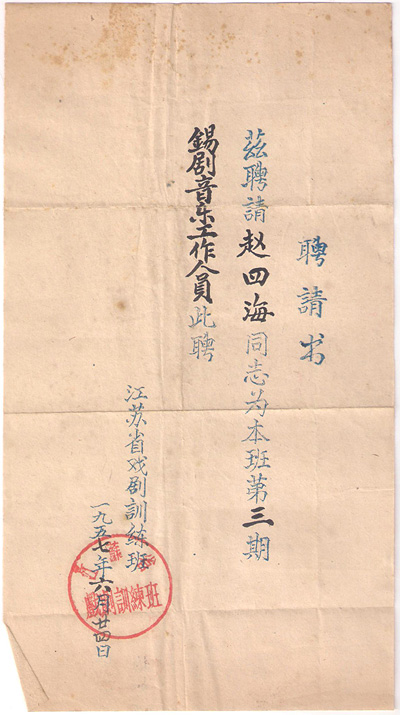 聘请书
茲聘請赵四海同志为本班第三期
錫剧音乐工作人員此聘
江苏省戏剧訓練班
一九五七年六月廿四日
戲劇訓練班